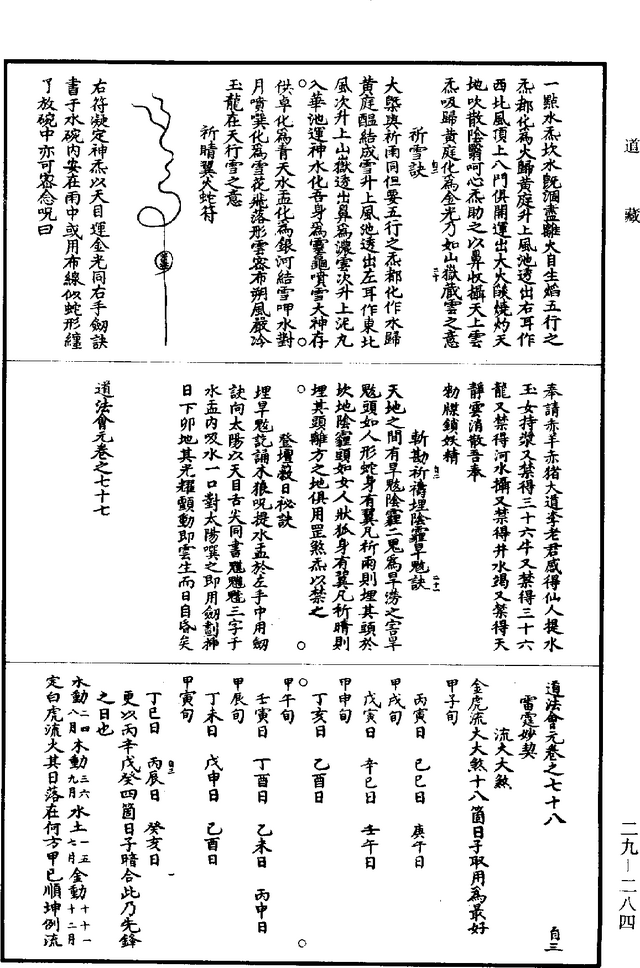 道藏
一點水炁坎水既涸盡離火自生焰五行之
炁都化為火歸黃庭升上風池透出右耳作
西北風頂上八門俱開運出大火燄燒灼天
地吹散陰翳呵心炁助之以鼻收攝天上雲
炁吸歸黃庭化為金光乃如山嶽藏雲之意
祈雪訣
大槩與祈雨同但要五行之炁都化作水歸
黃庭醖結成雪升上風池透出左耳作東北
風次升上山嶽透出鼻為濃雲次升上泥丸
入華池運神水化吾身為靈龜噴雪大神存
供卓化為青天水盂化為銀河結雪呷水對
月噴噀化為雪花飛落形雲密布朔風嚴冷
玉龍在天行雪之意
祈晴翼火蛇符
右符凝定神炁以天目運金光同右手劔訣
書于水碗內安在雨中或用布線似蛇形纏
了放碗中亦可密念呪曰
奉請赤羊赤猪大道李老君感得仙人提水
玉女持漿又禁得三十六牛又禁得三十六
龍又禁得河水攝又禁得井水竭又禁得天
靜雲消散吾奉
勑牒鎖妖精
斬勘祈禱埋陰霾旱魃訣
天地之間有旱魃陰霾二鬼為旱澇之害旱
魃頭如人形蛇身有翼凡祈雨則埋其頭於
坎地陰霾頭如女人狀狐身有翼凡祈晴則
埋其頭離方之地俱用罡煞炁以禁之
登壇蔽日祕訣
埋旱魃訖誦木狼呪提水盂於左手中用劔
訣向太陽以天目舌尖同書三字于
水盂內吸水一口對太陽噀之即用劔劃挿
日下卯地其光耀顫動即雲生而日自昏矣
道法會元卷之七十七
道法會元卷之七十八
自三
雷霆妙契
流火大煞
金虎流火大煞十八箇日子取用為最好
甲子旬
丙寅日 己巳日 庚午日
甲戌旬
戊寅日 辛巳日 壬午日
甲申旬
丁亥日 乙酉日
甲午旬
壬寅日 丁酉日 乙未日 丙申日
甲辰旬
丁未日 戊申日 己酉日
甲寅旬
丁巳日 丙辰日 癸亥日
更以丙辛戊癸四箇日子暗合此乃先鋒
之日也
水動二四八月木動三六九月水土一五七月金動十十一十二月
定白虎流火其日落在何方甲巳順坤例流
二九—二八四